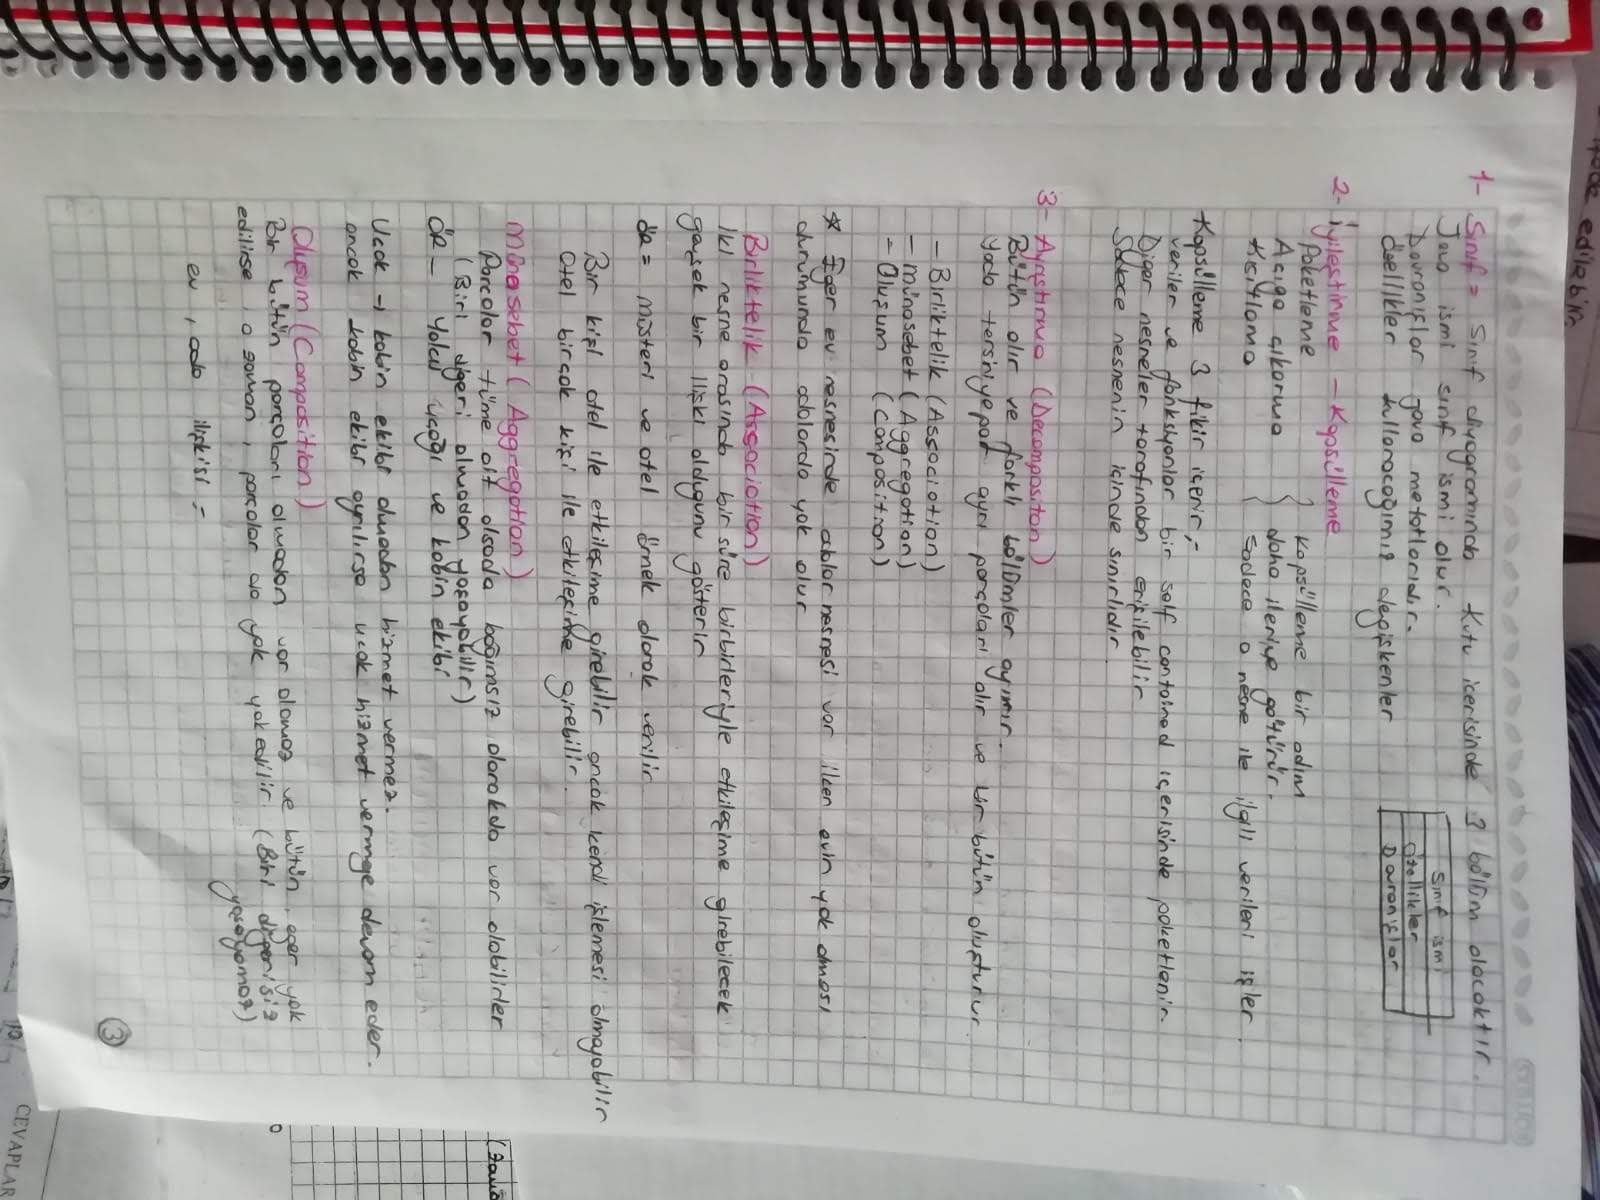 1- Sınıf = Sınıf diyagramında kutu içerisinde 3 bölüm olacaktır.
Java ismi sınıf ismi olur.
Davranışlar java metotlarıdır.
özellikler kullanacağımız değişkenler
Sınıf ismi
Özellikler
Davranışlar
2- İyileştirme - Kapsülleme
Paketleme } kapsülleme bir adım
Açığa çıkarma } daha ileriye götürür.
Kısıtlama { sadece o nesne ile ilgili verileri işler.
Kapsülleme 3 fikir içerir;-
veriler ve fonksiyonlar bir self contained içerisinde paketlenir.
Diğer nesneler tarafından erişilebilir
Sadece nesnenin içinde sınırlıdır
3- Ayrıştırma (Decompositon)
Bütün alır ve farklı bölümler ayırır.
yada tersini yapar ayrı parçaları alır ve bir bütün oluşturur
- Birliktelik (Association)
- münasebet (Aggregation)
- Oluşum (Composition)
* Eğer ev nesnesinde odalar nesnesi var iken evin yok olması
durumunda odalarda yok olur
Birliktelik (Association)
İki nesne arasında bir süre birbirleriyle etkileşime girebilecek
gevşek bir ilişki olduğunu gösterir
ör = müsteri ve otel örnek olarak verilir
Bir kişi otel ile etkileşime girebilir ancak kendi işlemesi olmayabilir
Otel birçok kişi ile etkileşime girebilir.
münasebet (Aggregation)
Parçalar tüme ait olsada bağımsız olarakda var olabilirler
(Biri diğeri olmadan yaşayabilir)
ör - Yolcu uçağı ve kabin ekibi
Ucak → kabin ekibi olmadan hizmet vermez.
ancak kabin ekibi ayrılırsa ucak hizmet vermeye devam eder.
Oluşum (Composition)
Bir bütün parçaları olmadan var olamaz ve bütün eğer yok
edilirse, o zaman, parçalar da yok yokedilir. (Biri diğerisiz
yaşayamaz)
ev, oda ilişkisi -
3
edilebilir.
CEVAPLAR